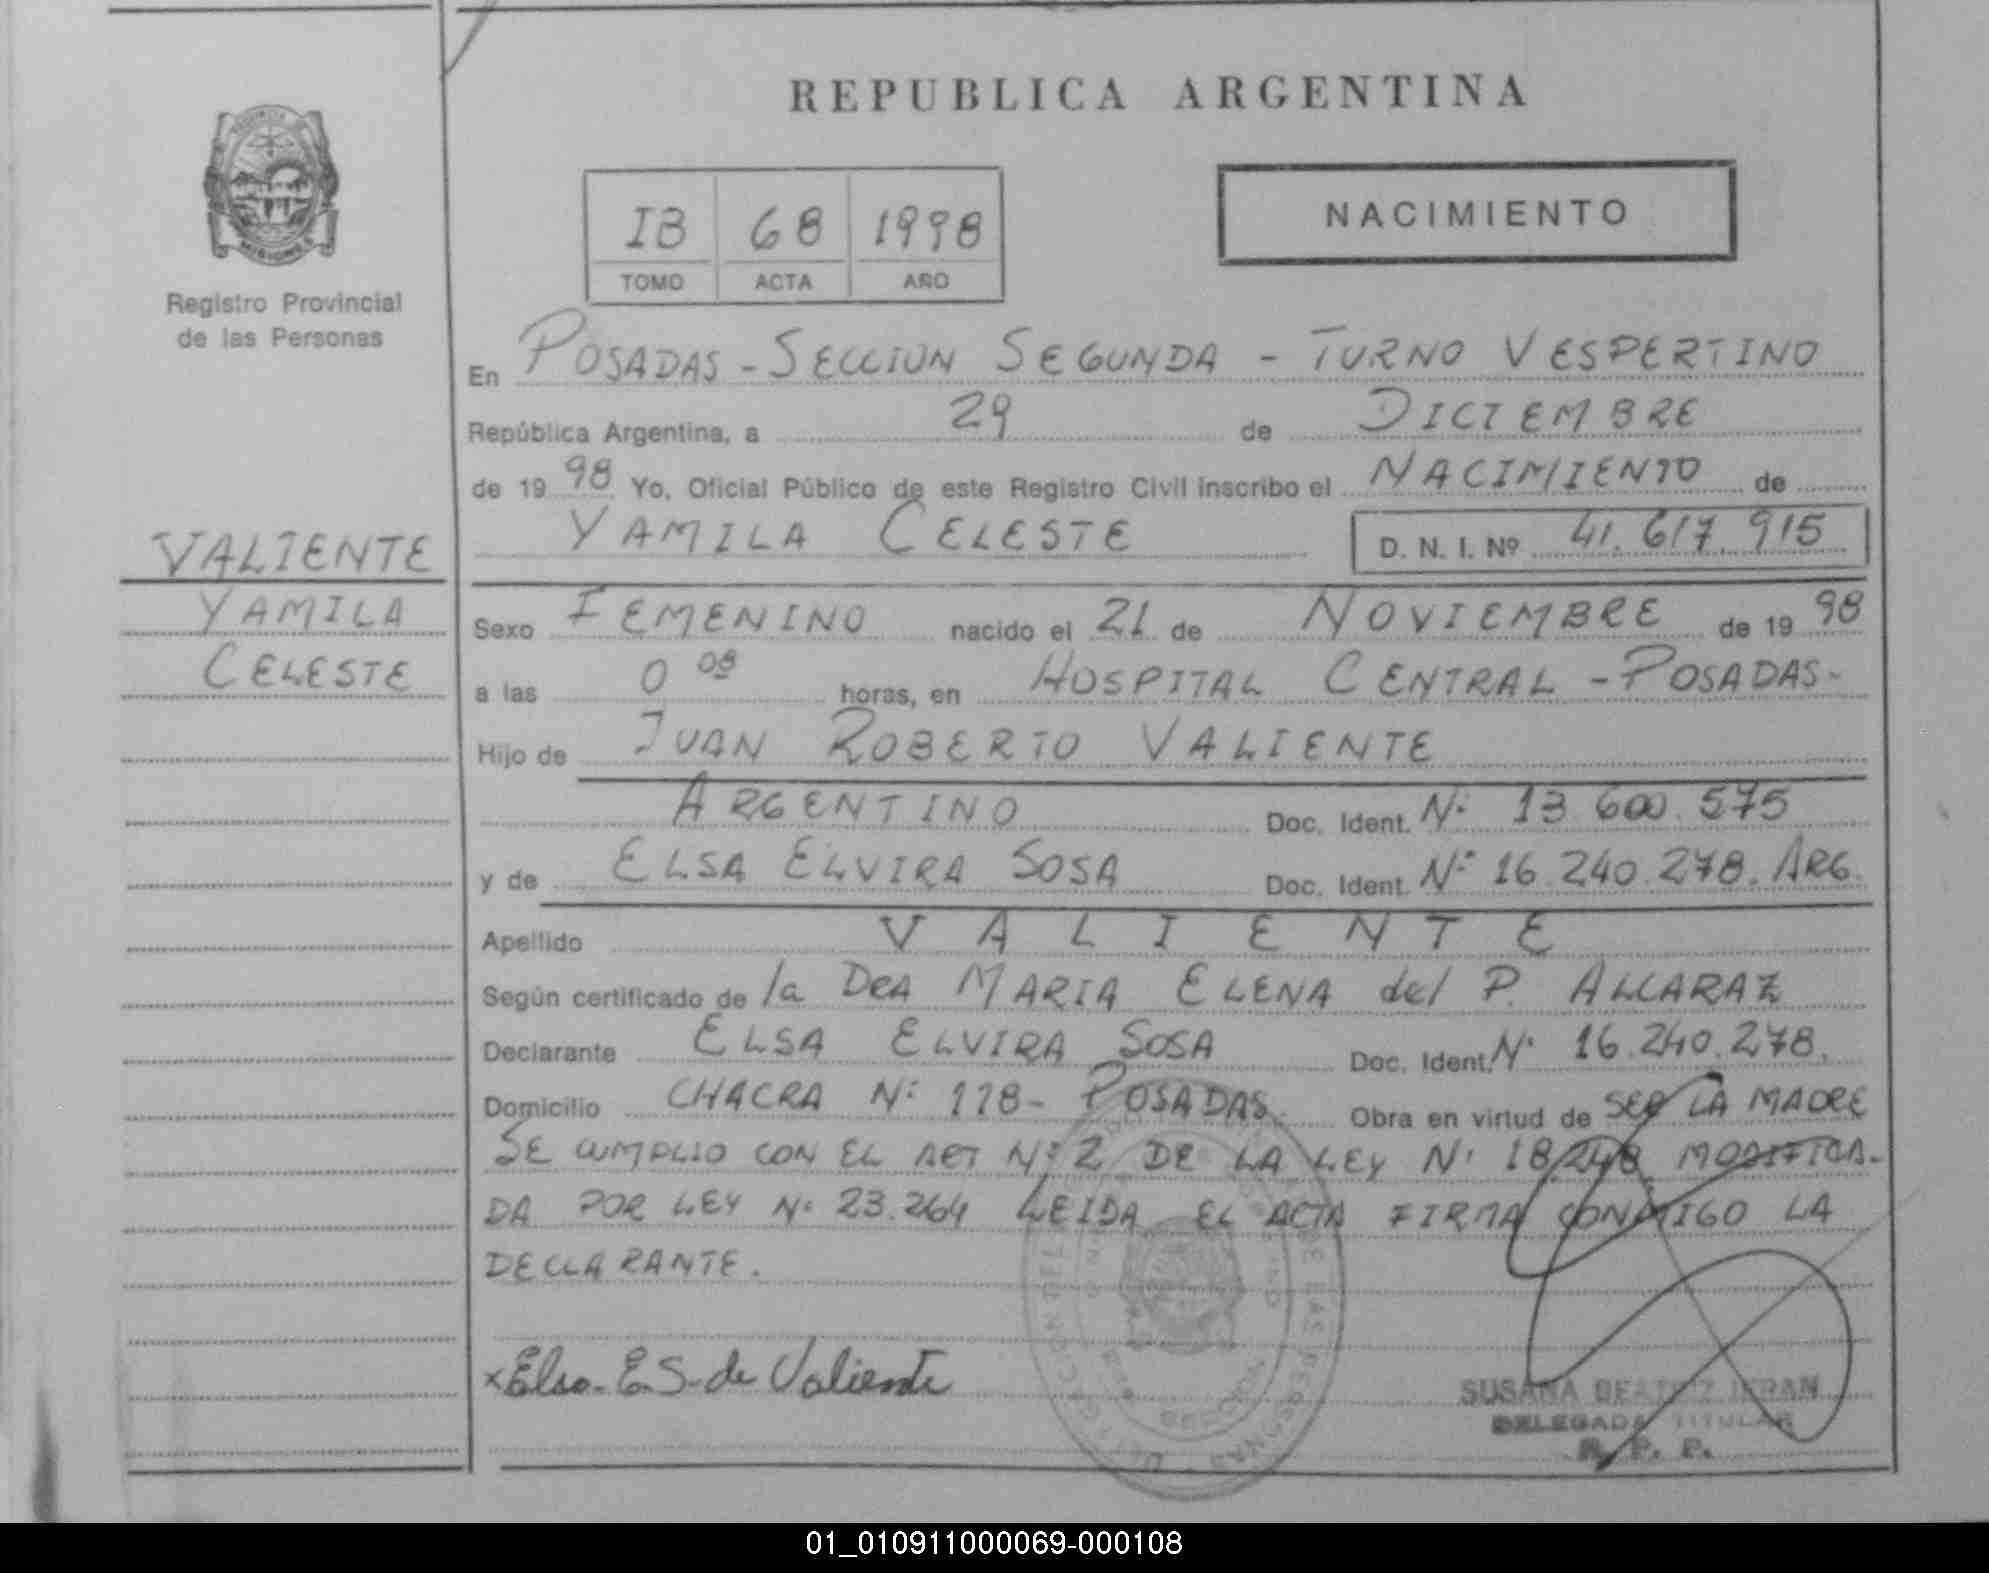 REPUBLICA ARGENTINA
PROVINCIA DE
MISIONES
Registro Provincial
de las Personas
IB 68 1998
TOMO ACTA AÑO
NACIMIENTO
En POSADAS - SECCION SEGUNDA - TURNO VESPERTINO
República Argentina, a 29 de DICIEMBRE
de 1998 Yo, Oficial Público de este Registro Civil inscribo el NACIMIENTO de
YAMILA CELESTE D. N. I. Nº 41.617.915
VALIENTE
YAMILA
CELESTE
Sexo FEMENINO nacido el 21 de NOVIEMBRE de 1998
a las 0 08 horas, en HOSPITAL CENTRAL - POSADAS-
Hijo de JUAN ROBERTO VALIENTE
ARGENTINO Doc. Ident. Nº 13.600.575
y de ELSA ELVIRA SOSA Doc. Ident. Nº 16.240.278. ARG.
Apellido VALIENTE
Según certificado de la DRA MARIA ELENA del P. ALCARAZ
Declarante ELSA ELVIRA SOSA Doc. Ident. Nº 16.240.278.
Domicilio CHACRA Nº 118- POSADAS. Obra en virtud de SER LA MADRE
SE CUMPLIO CON EL ART Nº 2 DE LA LEY Nº 18.248 MODIFICA-
DA POR LEY Nº 23.264 LEIDA EL ACTA FIRMA CONMIGO LA
DECLARANTE.
x Elsa. E. S. de Valiente
SUSANA BEATRIZ
DELEGADA TITULAR
R. P. P.
01_010911000069-000108